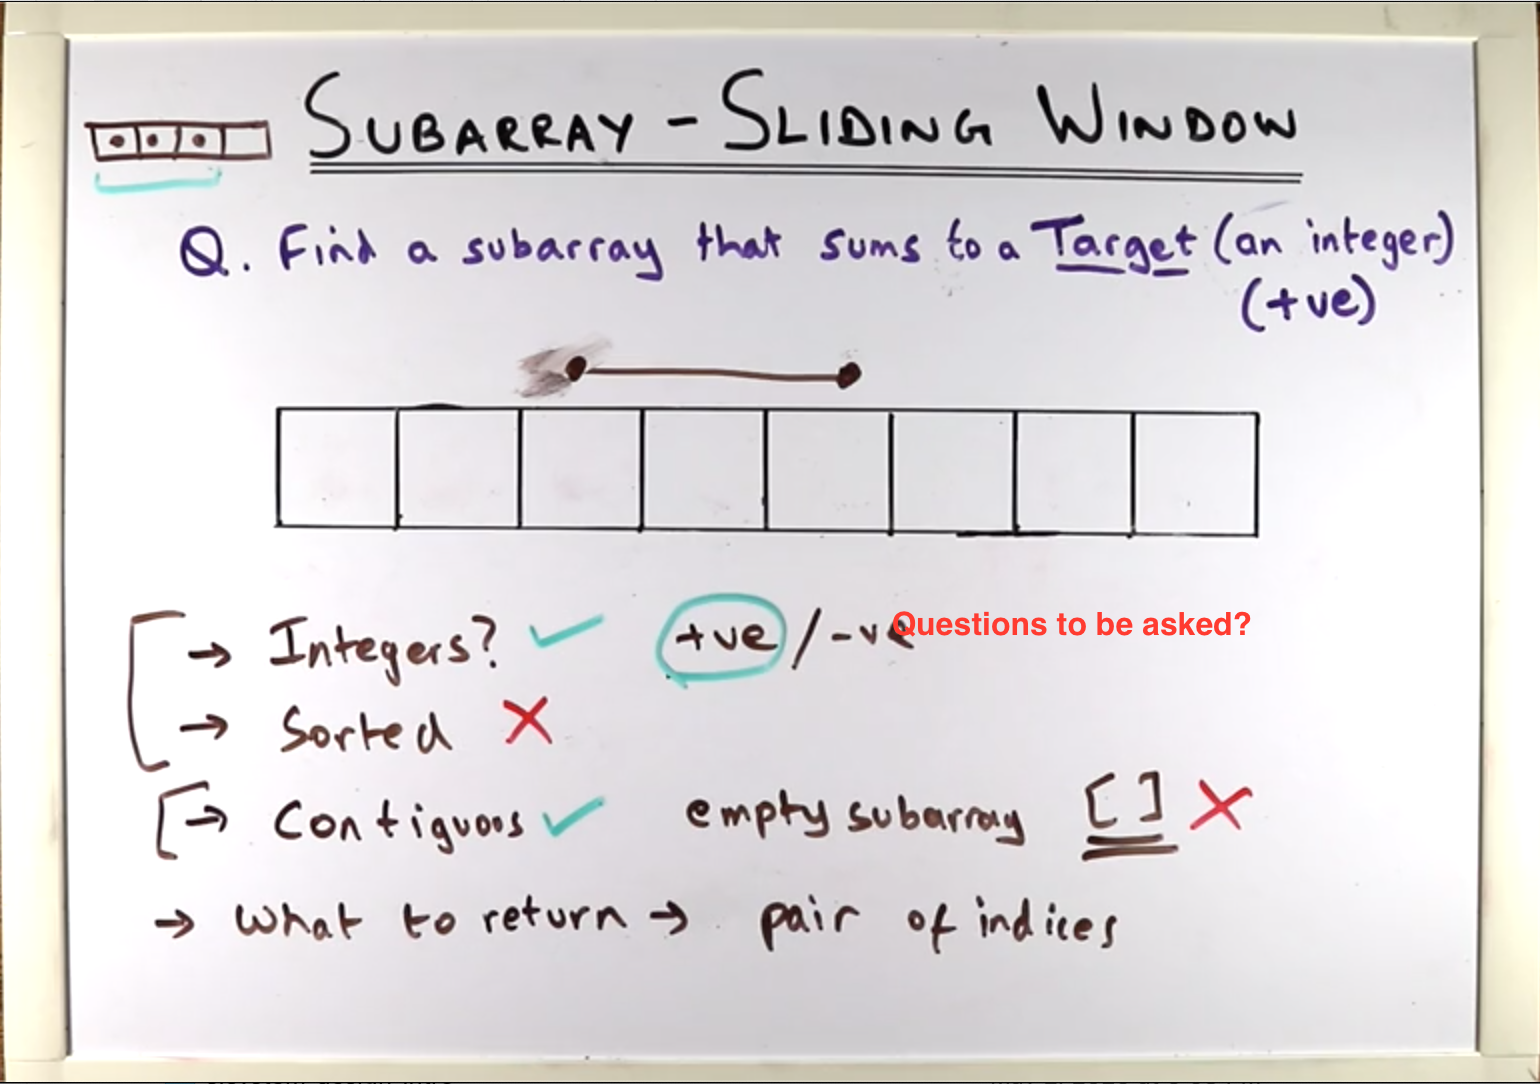 SUBARRAY - SLIDING WINDOW
Q. Find a subarray that sums to a Target (an integer)
(+ve)
→ Integers? ✓ +ve / -ve Questions to be asked?
→ Sorted X
→ Contiguous ✓ empty subarray [ ] X
→ What to return → pair of indices